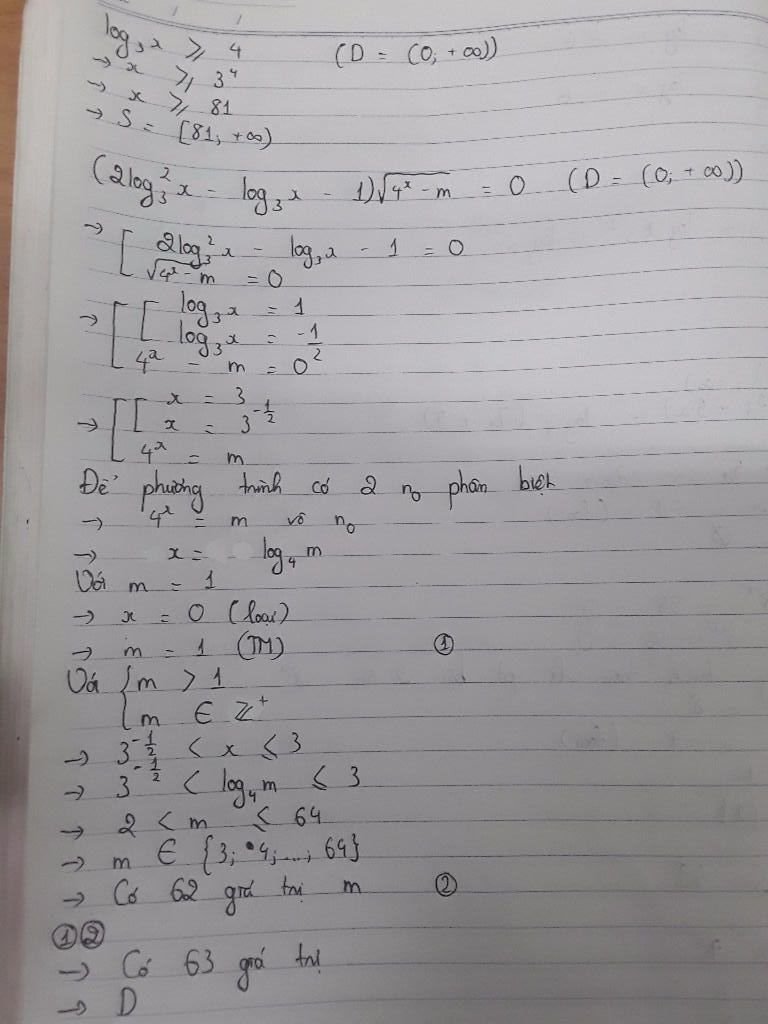 log₃x ⩾ 4 (D = (0; +∞))
→ x ⩾ 3⁴
→ x ⩾ 81
→ S = [81; +∞)
(2log₃²x - log₃x - 1)√(4ˣ - m) = 0 (D = (0; +∞))
→ [ 2log₃²x - log₃x - 1 = 0
√(4ˣ - m) = 0
→ [ [ log₃x = 1
log₃x = -1/2
4ˣ - m = 0
→ [ [ x = 3
x = 3^(-1/2)
4ˣ = m
Để phương trình có 2 n₀ phân biệt
→ 4ˣ = m vô n₀
→ x = log₄m
Với m = 1
→ x = 0 (loại)
→ m = 1 (TM) ①
Với { m > 1
m ∈ ℤ⁺
→ 3^(-1/2) < x ⩽ 3
→ 3^(-1/2) < log₄m ⩽ 3
→ 2 < m ⩽ 64
→ m ∈ {3; 4; ...; 64}
→ Có 62 giá trị m ②
①②
→ Có 63 giá trị
→ D